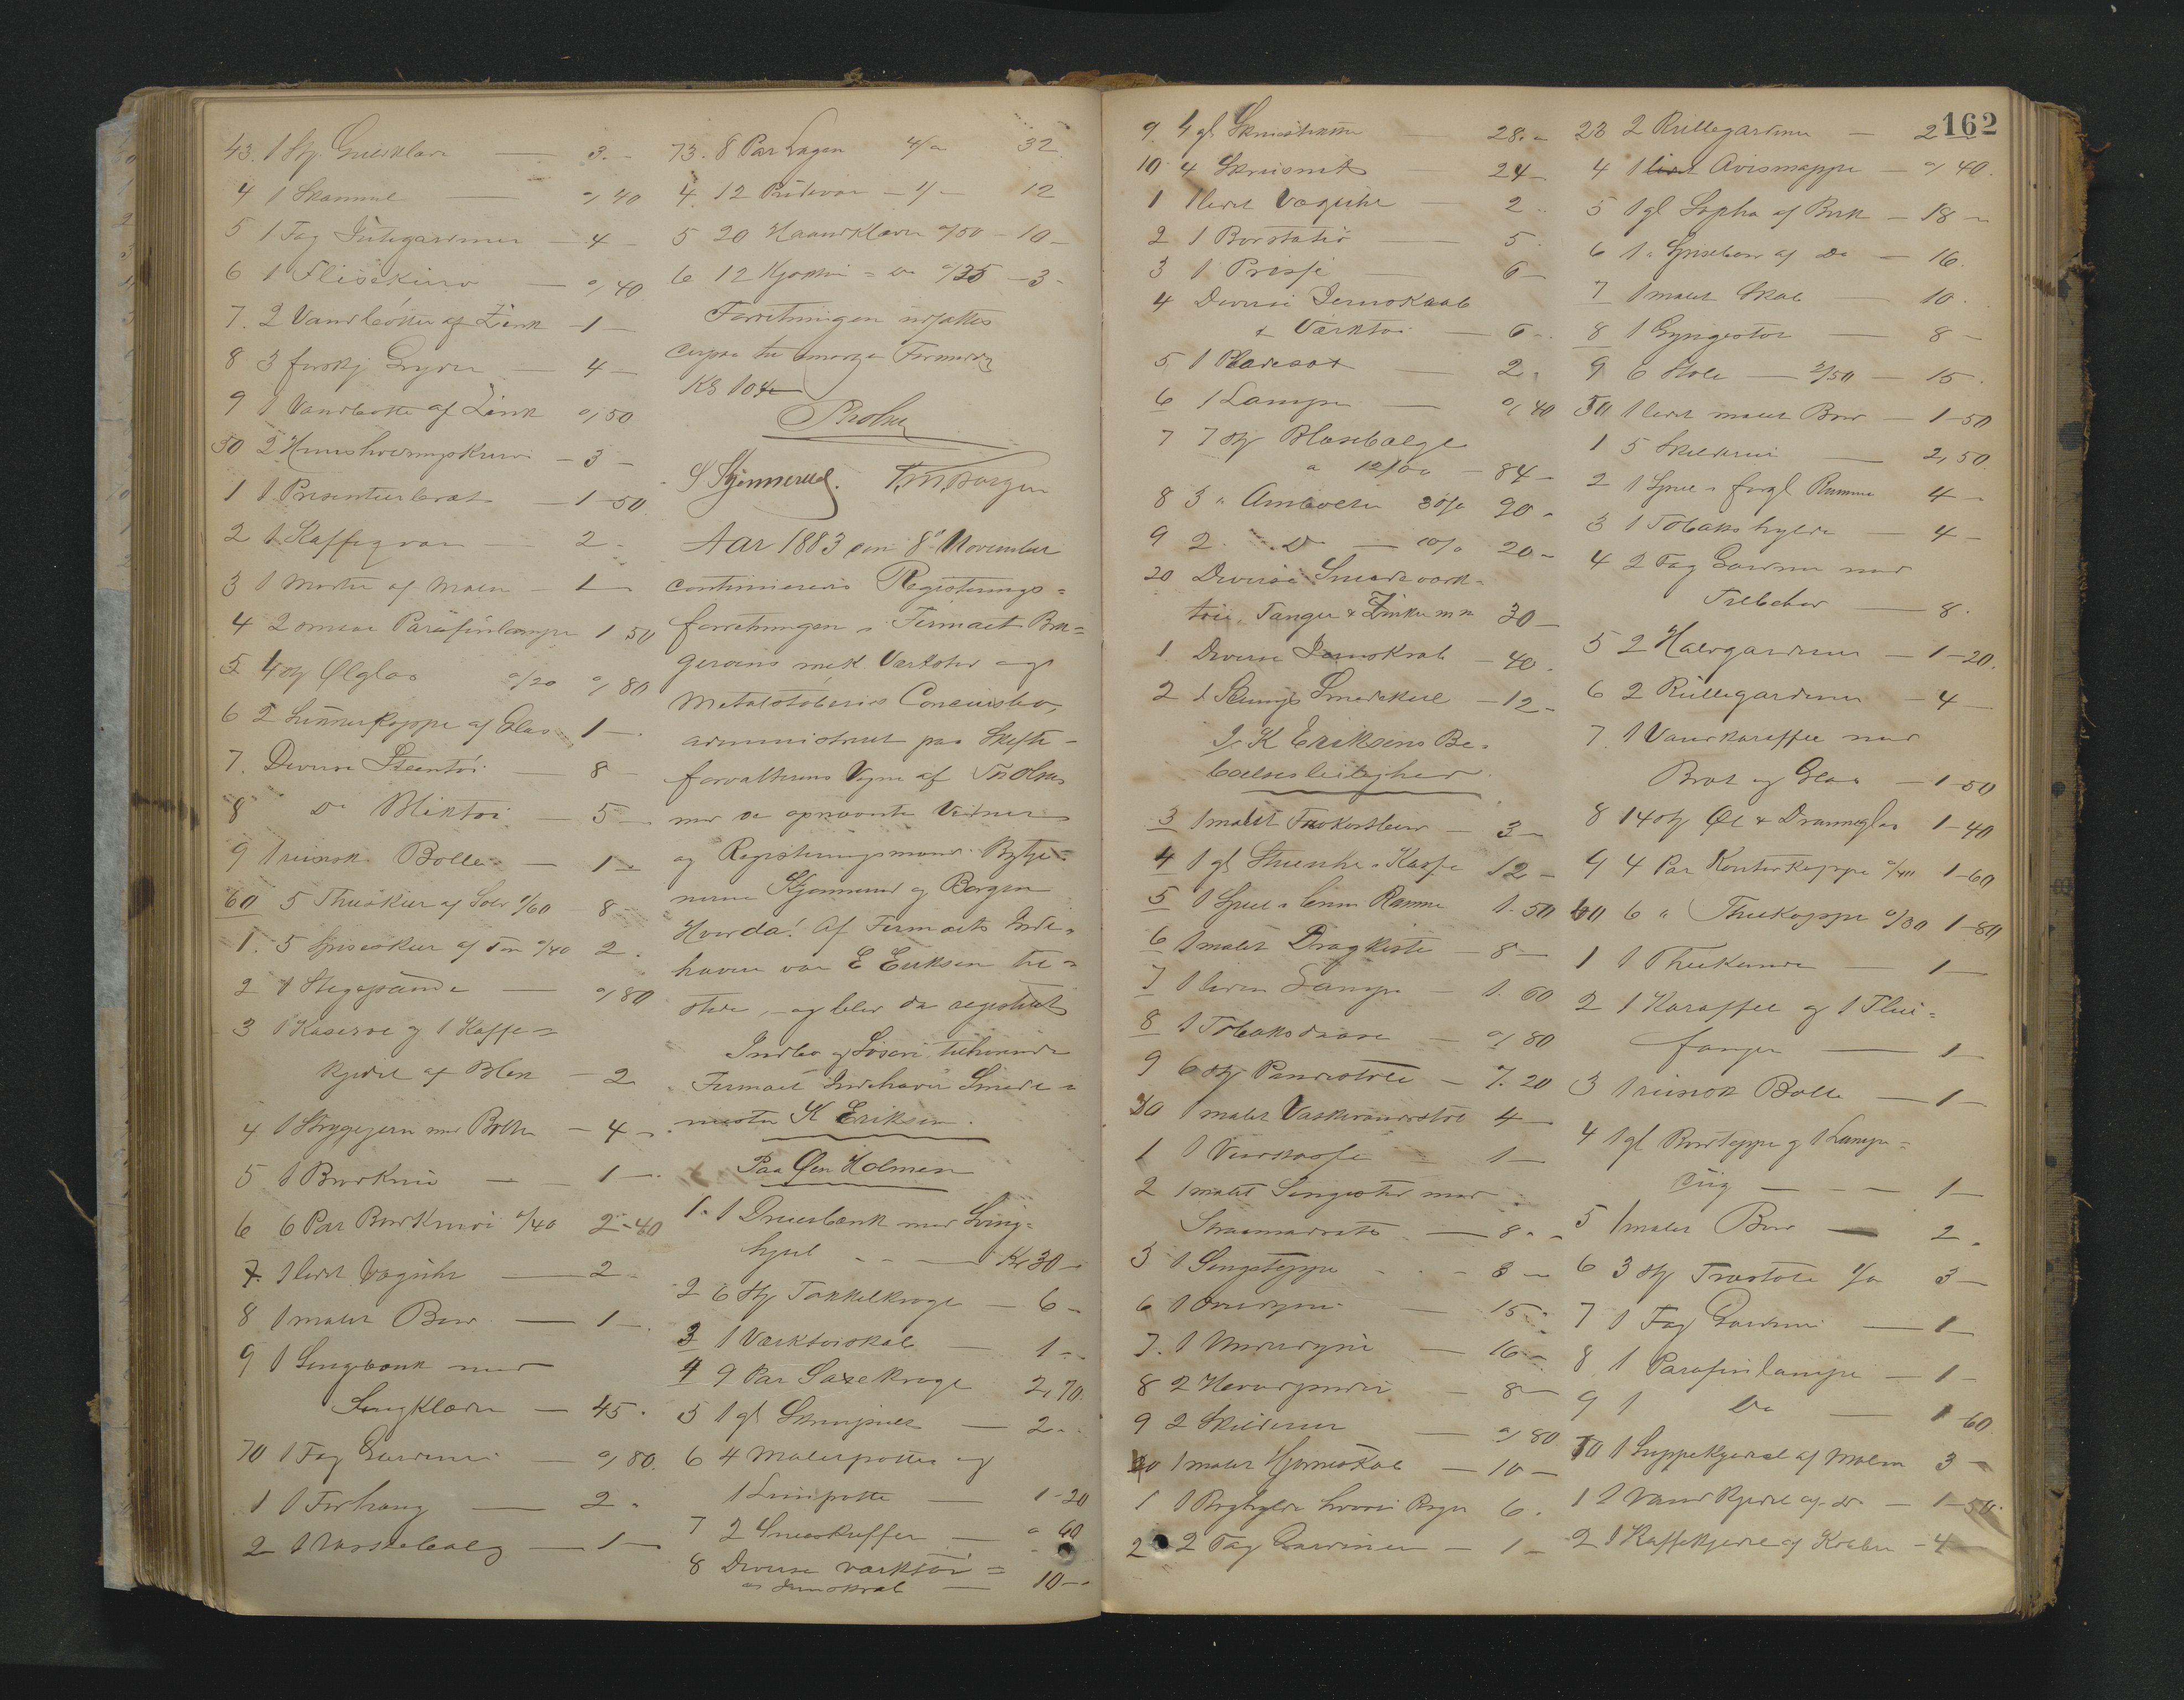 43. 1 Stk. Gulvklæde — 3.-
4 1 Skammel — "/40
5 1 Fag Jutegardiner — 4 -
6 1 Flisekurv — "/40
7. 2 Vandbøtter af Zink — 1 —
8 3 forskj Gryder — 4 —
9 1 Vandbøtte af Zink "/50
50 2 Huusholdningskurve — 3 —
1 1 Presenteerbræt — 1-50
2 1 Kaffeqvæn — 2 -
3 1 Morter af Malm — 1 —
4 2 smaae Parafinlamper 1 50
5 4 stk Ølglas "/20 "/80
6 2 Sukkerkopper af Glas 1 —
7. Diverse Steentøi — 8 -
8 Do Bliktøi — 5 —
9 1 russisk Bolle — 1 —
60 5 Theskeer af Sølv 1/60 — 8 -
1. 5 Spiseskeer af Tin "/40 2.
2 1 Stegepande — "/80
3 1 Kaserolle og 1 Kaffe-
kjedel af Blik — 2
4 1 Strygejern med Bolter — 4 -
5 1 Brødkniv — 1 —
6 6 Par Bordknive "/40 2-40
7. 1 lidet Væguhr — 2 -
8 1 malet Bord — 1 —
9 1 Sengebænk med
Sengklæder — 45.
70 1 Fag Gardiner — "/80.
1 1 Forhæng — 2.
2 1 Vaskebalg — 1 —
73. 8 Par Lagen 4/" 32
4. 12 Pudevar — 1/- 12
5 20 Haandklæder "/50 — 10 -
6 12 Kjøkken- Do "/25 — 3 -
Forretningen udsattes
KB 10
S Kjemmerud. T. M. Borgen
Aar 1883 den 8de November
continueredes Registrerings-
forretningen i Firmaet Bor-
geraens mek Værksted og
Metalstøberies Concursbo,
administreret paa Skifte-
forvalterens Vegne af
med de opnævnte Vidner
og Registreringsmænd
Kjemmerud og Borgen
Hvorda! Af Firmaets Inde-
havere var E Eriksen til-
stede, — og blev da registreret
Indbo og Løsøre tilhørende
Firmaets Indehaver Smede-
mester K Eriksen.
Paa Øen Holmen
1. 1 Dreiebænk med Sving-
hjul — Kr 30 —
2 6 Stk Takkelkroge — 6 -
3 1 Værktøiskab — 1 -
4 9 Par Saxekroge 2,70.
5 1 gl — 2 -
6 4 Malerpotter og
1 Limpotte — 1-20
7 2 Sneeskuffer — " 60
8 Diverse værktøi =
og Jernskrab — 10 —
162
9. 4 gl Skruestikker — 28. -
10 4 Skruesnit — 24 -
1 1 lidet Væguhr — 2 -
2 1 Borstativ — 5.
3 1 — 6 -
4 Diverse Jernskrab
& Værktøi — 6 -
5 1 — 2.
6 1 Lampe — "/40
7 7 Stk Blæsebælge
a 12/00 — 84 -
8 3 " Ambolter 30/" 90 -
9 2. " Do — 10/" 20 -
20 Diverse Smedeværk-
tøi, Tænger & m m 30 —
1. Diverse Jernskrab — 40.
2 1 Smedekul — 12 -
I K Eriksens Be-
boelsesleilighed.
3 1 malet Frokostbord — 3 -
4 1 gl Kasse 12 —
5 1 Speil i brun Ramme 1. 50
6 1 malet Dragkiste — 8 —
7 1 liden Lampe — 1. 60
8 1 Tobaksdaase — "/80
9 6 stk Pindestole — 7. 20
30 1 malet Vaskevandsstol 4 —
1 1 Vedkasse — 1 —
2 1 malet Sengested med
Straamadrats — 8. -
3 1 Sengetæppe — 3 —
6 1 Overdyne — 15 -
7. 1 Underdyne — 16 -
8 2 Hovedpuder — 8 —
9 2 Skilderier — "/80
40 1 malet Hjørneskab — 10 —
1 1 Boghylde hvori Bøger 6.
2 2 Fag Gardiner — 1 -
23 2 Rullegardiner — 2
4 1 Avismappe — "/40.
5 1 gl Sopha af Birk — 18 —
6 1 " Spisebord af Do — 16.
7 1 malet Skab 10.
8 1 Gyngestol — 8 -
9 6 Stole — 2/50 — 15.
50 1 lidet malet Bord — 1-50
1 5 Skilderier — 2,50.
2 1 Speil i forgl Ramme 4 -
3 1 Tobakshylde — 4 -
4 2 Fag Gardiner med
Tilbehør — 8.
5 2 Halvgardiner — 1-20.
6 2 Rullegardiner — 4 —
7. 1 Vandkaraffel med
Bræt og Glas — 1-50
8 14 stk Øl & Dramme­glas 1-40
9 4 Par "/40 1-60
60 6 " Theekopper "/30 1-80
1 1 Theekande — 1 —
2 1 Karaffel og 1 Flue-
fanger — 1 —
3 1 russisk Bolle — 1 —
4 1 gl Bordteppe og 1 Lampe-
— 1 —
5 1 malet Bord — 2.
6 3 stk Træstole 1/" 3 —
7 1 Fag Gardiner — 1 —
8 1 Parafinlampe — 1 -
9 1 Do — 1 60
70 1 Suppekjedel af Malm 3 -
1 2 Vandkjedel af do — 1-50.
2 1 Kaffekjedel af Kobber — 4 —